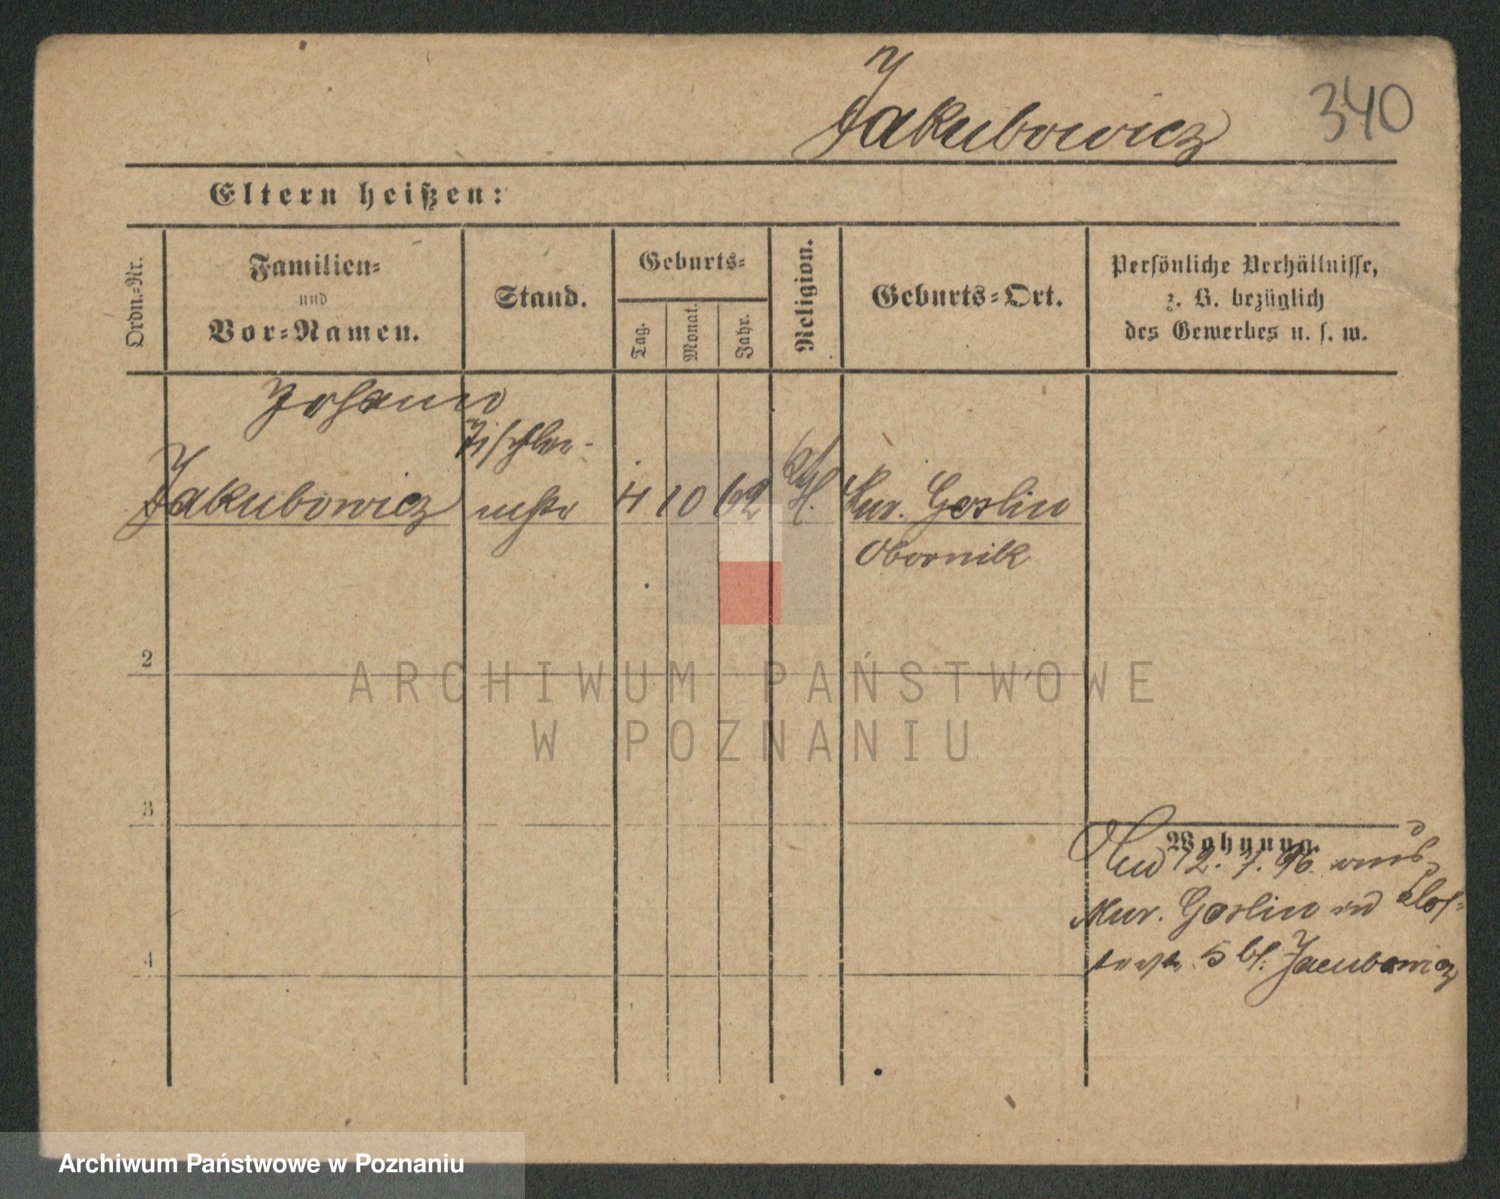 Jakubowicz
340
Eltern heißen:
Ordn.-Nr.
Familien-
und
Vor-Namen.
Stand.
Geburts-
Tag.
Monat.
Jahr.
Religion.
Geburts-Ort.
Persönliche Verhältnisse,
z. B. bezüglich
des Gewerbes u. s. w.
Johann
Jakubowicz
Tischler-
10 62
Mur. Goslin
Obornik
2
3
4
Wohnung.
12. 7. 96. aus
Mur. Goslin in Klos-
5 bf. Jacubowicz
ARCHIWUM PAŃSTWOWE
W POZNANIU
Archiwum Państwowe w Poznaniu